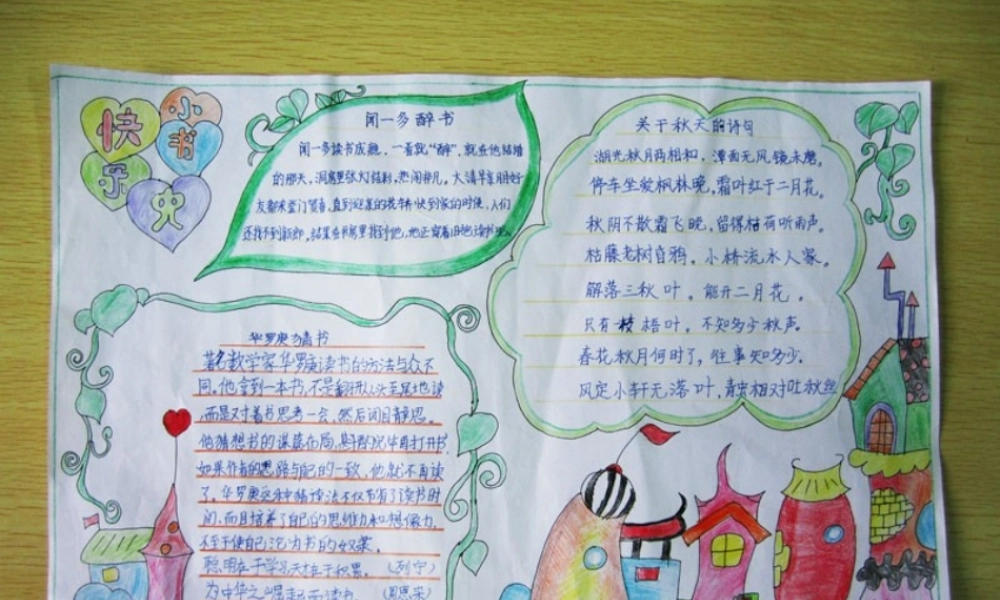 快乐
小书虫
闻一多醉书
闻一多读书成瘾,一看就“醉”,就在他结婚
的那天,洞房里张灯结彩,热闹非凡。大清早亲朋好
友都来登门贺喜,直到迎亲的花轿快到家的时候,人们
还找不到新郎。结果在书房里找到他,他还穿着旧袍读书呢。
关于秋天的诗句
湖光秋月两相和,潭面无风镜未磨。
停车坐爱枫林晚,霜叶红于二月花。
秋阴不散霜飞晚,留得枯荷听雨声。
枯藤老树昏鸦。小桥流水人家。
解落三秋叶。能开二月花。
只有梧叶。不知多少秋声。
春花秋月何时了,往事知多少。
风定小轩无落叶,青虫相对吐秋丝
华罗庚猜书
著名数学家华罗庚读书的方法与众不
同,他拿到一本书,不是翻开从头至尾地读
,而是对着书思考一会,然后闭目静思。
他猜想书的谋篇布局,再打开书
如果作者的思路与自己的一致,他就不再读
了。华罗庚这种猜读法不仅节省了读书时
间,而且培养了自己的思维力和想像力,
不至于使自己沦为书的奴隶。
聪明在于学习天才在于积累。(列宁)
为中华之崛起而读书。(周恩来)